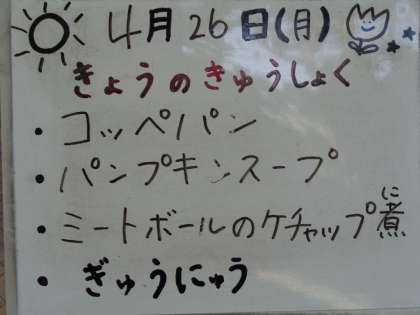 4月26日(月)
きょうのきゅうしょく
・コッペパン
・パンプキンスープ
・ミートボールのケチャップ煮(に)
・ぎゅうにゅう